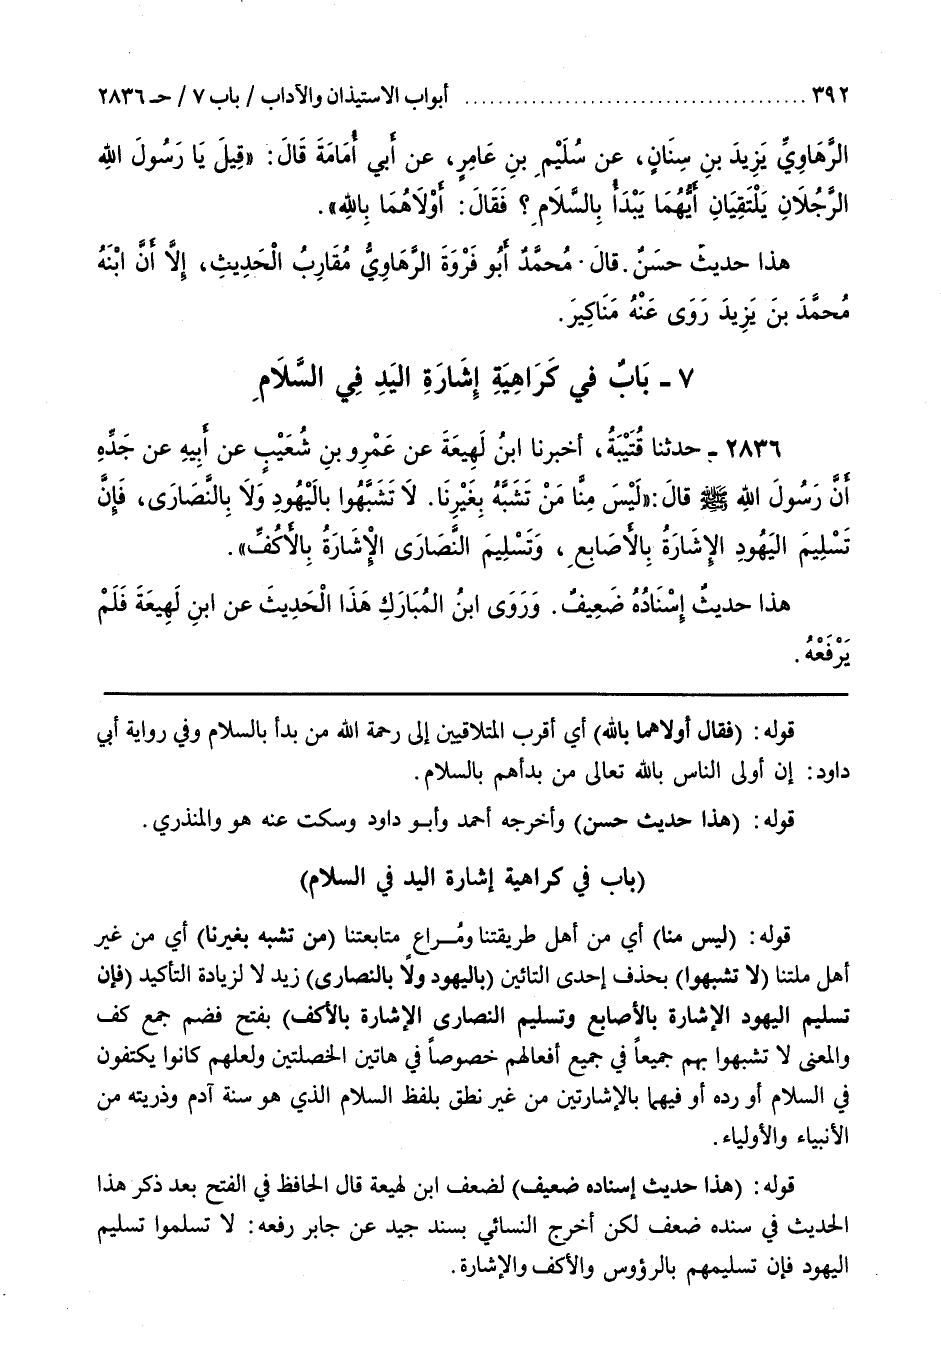 ٣٩٢ ........................................ أبواب الاستيذان والآداب / باب ٧ / حـ ٢٨٣٦
الرَّهَاوِيِّ يَزِيدَ بنِ سِنَانٍ، عن سُلَيْمِ بنِ عَامِرٍ، عن أَبي أُمَامَةَ قَالَ: «قِيلَ يَا رَسُولَ اللهِ
الرَّجُلَانِ يَلْتَقِيَانِ أَيُّهُمَا يَبْدَأُ بِالسَّلَامِ؟ فَقَالَ: أَوْلَاهُمَا بِاللهِ».
هذا حديثٌ حسَنٌ. قالَ: مُحمَّدٌ أَبُو فَرْوَةَ الرَّهَاوِيُّ مُقَارِبُ الْحَدِيثِ، إِلَّا أَنَّ ابْنَهُ
مُحمَّدَ بنَ يَزِيدَ رَوَى عَنْهُ مَنَاكِيرَ.
٧ - بَابٌ في كَرَاهِيَةِ إِشَارَةِ اليَدِ فِي السَّلَامِ
٢٨٣٦ - حدثنا قُتَيْبَةُ، أخبرنا ابنُ لَهِيعَةَ عن عَمْرِو بنِ شُعَيْبٍ عن أَبِيهِ عن جَدِّهِ
أَنَّ رَسُولَ اللهِ ﷺ قالَ: «لَيْسَ مِنَّا مَنْ تَشَبَّهَ بِغَيْرِنَا. لَا تَشَبَّهُوا بالْيَهُودِ وَلَا بِالنَّصَارَى، فَإِنَّ
تَسْلِيمَ اليَهُودِ الإِشَارَةُ بِالْأَصَابِعِ، وَتَسْلِيمَ النَّصَارَى الْإِشَارَةُ بِالْأَكُفِّ».
هذا حديثٌ إِسْنَادُهُ ضَعِيفٌ. وَرَوَى ابنُ المُبَارَكِ هَذَا الْحَدِيثَ عن ابنِ لَهِيعَةَ فَلَمْ
يَرْفَعْهُ.
قوله: (فقال أولاهما بالله) أي أقرب المتلاقيين إلى رحمة الله من بدأ بالسلام وفي رواية أبي
داود: إن أولى الناس بالله تعالى من بدأهم بالسلام.
قوله: (هذا حديث حسن) وأخرجه أحمد وأبـو داود وسكت عنه هو والمنذري.
(باب في كراهية إشارة اليد في السلام)
قوله: (ليس منا) أي من أهل طريقتنا ومُـراعٍ متابعتنا (من تشبه بغيرنا) أي من غير
أهل ملتنا (لا تشبهوا) بحذف إحدى التائين (باليهود ولا بالنصارى) زيد لا لزيادة التأكيد (فإن
تسليم اليهود الإشارة بالأصابع وتسليم النصارى الإشارة بالأكف) بفتح فضم جمع كف
والمعنى لا تشبهوا بهم جميعاً في جميع أفعالهم خصوصاً في هاتين الخصلتين ولعلهم كانوا يكتفون
في السلام أو رده أو فيهما بالإشارتين من غير نطق بلفظ السلام الذي هو سنة آدم وذريته من
الأنبياء والأولياء.
قوله: (هذا حديث إسناده ضعيف) لضعف ابن لهيعة قال الحافظ في الفتح بعد ذكر هذا
الحديث في سنده ضعف لكن أخرج النسائي بسند جيد عن جابر رفعه: لا تسلموا تسليم
اليهود فإن تسليمهم بالرؤوس والأكف والإشارة.